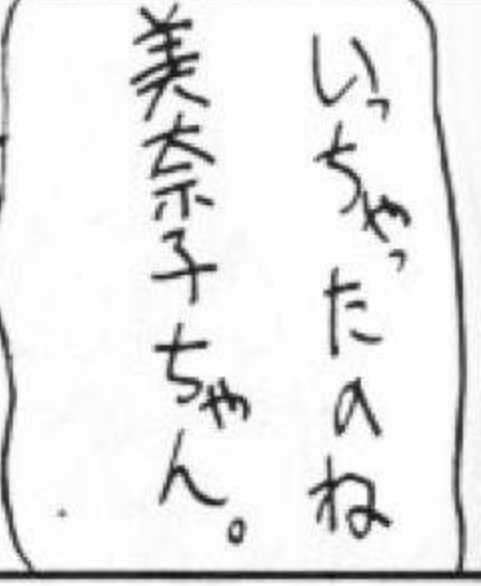 いっちゃったのね
美奈子ちゃん。